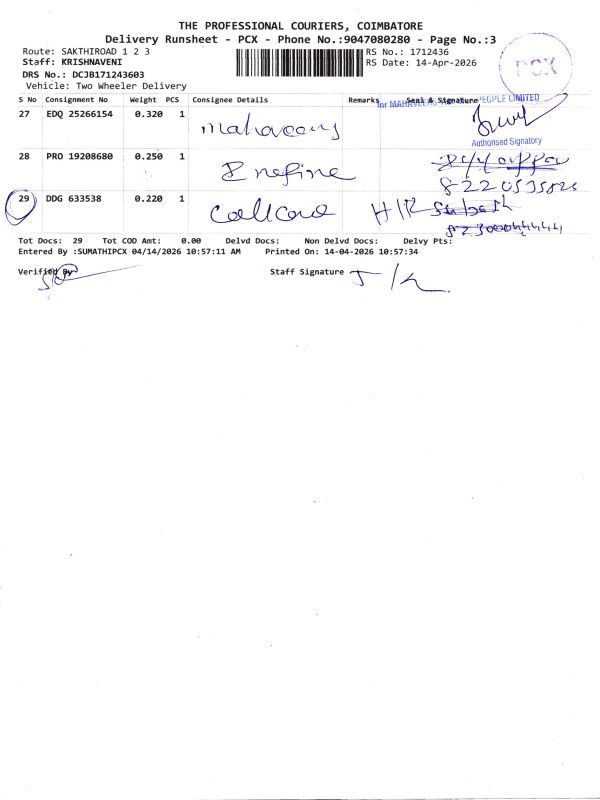 THE PROFESSIONAL COURIERS, COIMBATORE
Delivery Runsheet - PCX - Phone No.:9047080280 - Page No.:3
Route: SAKTHIROAD 1 2 3
RS No.: 1712436
Staff: KRISHNAVENI
RS Date: 14-Apr-2026
DRS No.: DCJB171243603
Vehicle: Two Wheeler Delivery
PCX
S No Consignment No Weight PCS Consignee Details Remarks Seal & Signature
for PEOPLE LIMITED
27 EDQ 25266154 0.320 1
Authorised Signatory
28 PRO 19208680 0.250 1
29 DDG 633538 0.220 1
Tot Docs: 29 Tot COD Amt: 0.00 Delvd Docs: Non Delvd Docs: Delvy Pts:
Entered By :SUMATHIPCX 04/14/2026 10:57:11 AM Printed On: 14-04-2026 10:57:34
Verified By Staff Signature